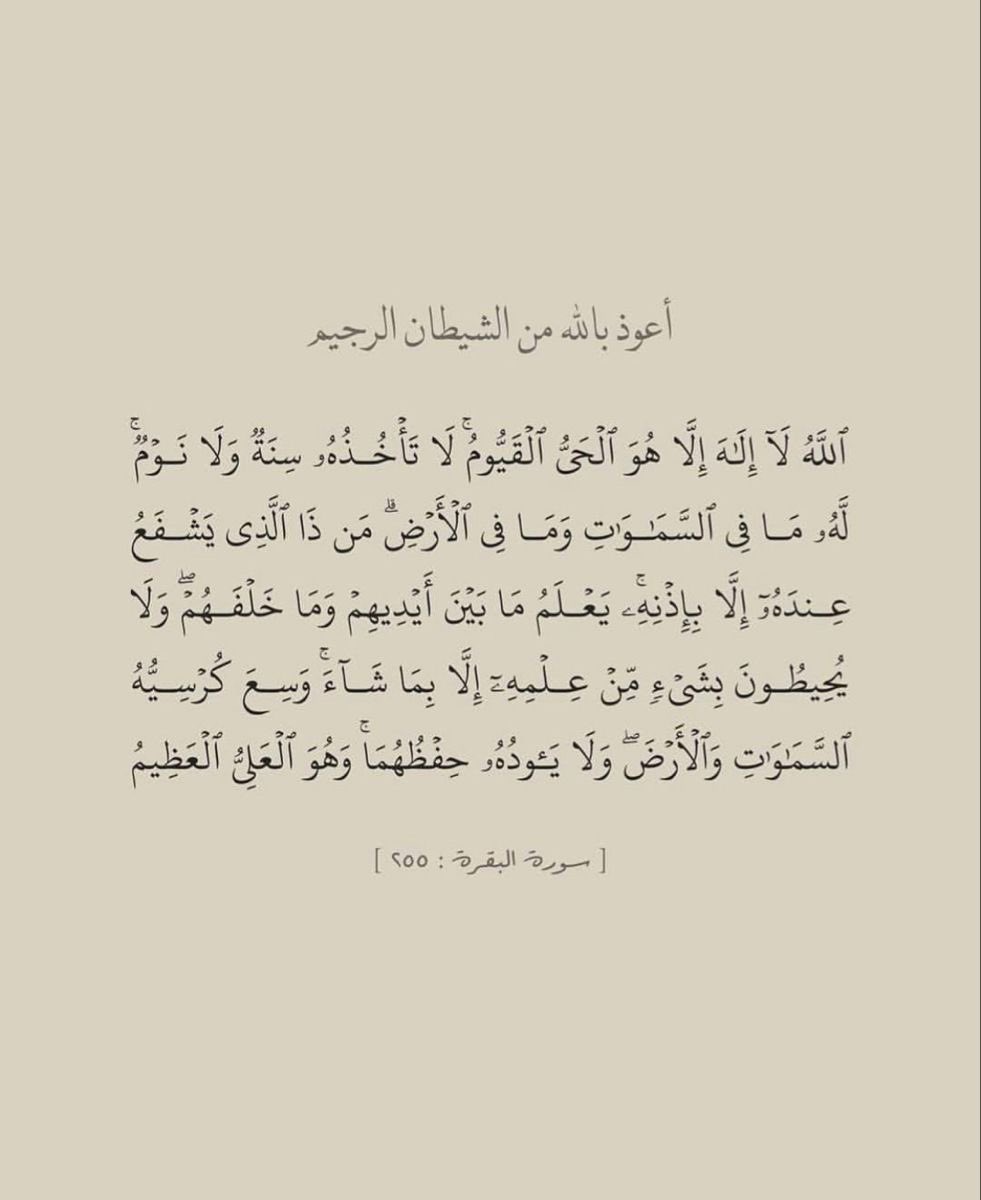 أعوذ بالله من الشيطان الرجيم
ٱللَّهُ لَآ إِلَـٰهَ إِلَّا هُوَ ٱلْحَىُّ ٱلْقَيُّومُ ۚ لَا تَأْخُـذُهُۥ سِنَةٌ وَلَا نَـوْمٌ ۚ
لَّهُۥ مَـا فِى ٱلسَّمَـٰوَٰتِ وَمَـا فِى ٱلْأَرْضِ ۗ مَن ذَا ٱلَّذِى يَشْـفَعُ
عِـندَهُۥٓ إِلَّا بِإِذْنِهِۦ ۚ يَعْـلَمُ مَا بَيْنَ أَيْدِيهِمْ وَمَا خَلْفَـهُمْ ۖ وَلَا
يُحِيطُـونَ بِشَىْءٍ مِّنْ عِـلْمِهِۦٓ إِلَّا بِمَا شَـآءَ ۚ وَسِـعَ كُرْسِـيُّهُ
ٱلسَّمَـٰوَٰتِ وَٱلْأَرْضَ ۖ وَلَا يَـُٔودُهُۥ حِفْظُهُمَا ۚ وَهُوَ ٱلْعَلِىُّ ٱلْعَظِيمُ
[ سورة البقرة : ٢٥٥ ]